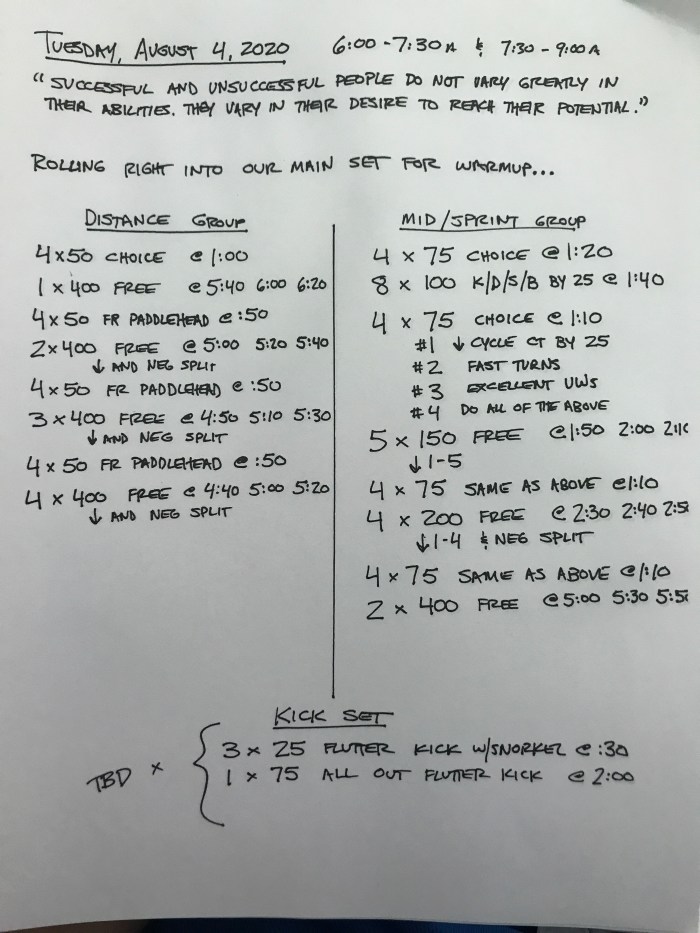 TUESDAY, AUGUST 4, 2020 6:00 - 7:30 A & 7:30 - 9:00 A
“SUCCESSFUL AND UNSUCCESSFUL PEOPLE DO NOT VARY GREATLY IN
THEIR ABILITIES. THEY VARY IN THEIR DESIRE TO REACH THEIR POTENTIAL.”
ROLLING RIGHT INTO OUR MAIN SET FOR WARMUP...
DISTANCE GROUP
4 x 50 CHOICE @ 1:00
1 x 400 FREE @ 5:40 6:00 6:20
4 x 50 FR PADDLEHEAD @ :50
2 x 400 FREE @ 5:00 5:20 5:40
↓ AND NEG SPLIT
4 x 50 FR PADDLEHEAD @ :50
3 x 400 FREE @ 4:50 5:10 5:30
↓ AND NEG SPLIT
4 x 50 FR PADDLEHEAD @ :50
4 x 400 FREE @ 4:40 5:00 5:20
↓ AND NEG SPLIT
MID/SPRINT GROUP
4 x 75 CHOICE @ 1:20
8 x 100 K/D/S/B BY 25 @ 1:40
4 x 75 CHOICE @ 1:10
#1 ↓ CYCLE CT BY 25
#2 FAST TURNS
#3 EXCELLENT UWS
#4 DO ALL OF THE ABOVE
5 x 150 FREE @ 1:50 2:00
↓ 1-5
4 x 75 SAME AS ABOVE @ 1:10
4 x 200 FREE @ 2:30 2:40
↓ 1-4 & NEG SPLIT
4 x 75 SAME AS ABOVE @ 1:10
2 x 400 FREE @ 5:00 5:30
KICK SET
TBD x { 3 x 25 FLUTTER KICK W/SNORKEL @ :30
1 x 75 ALL OUT FLUTTER KICK @ 2:00